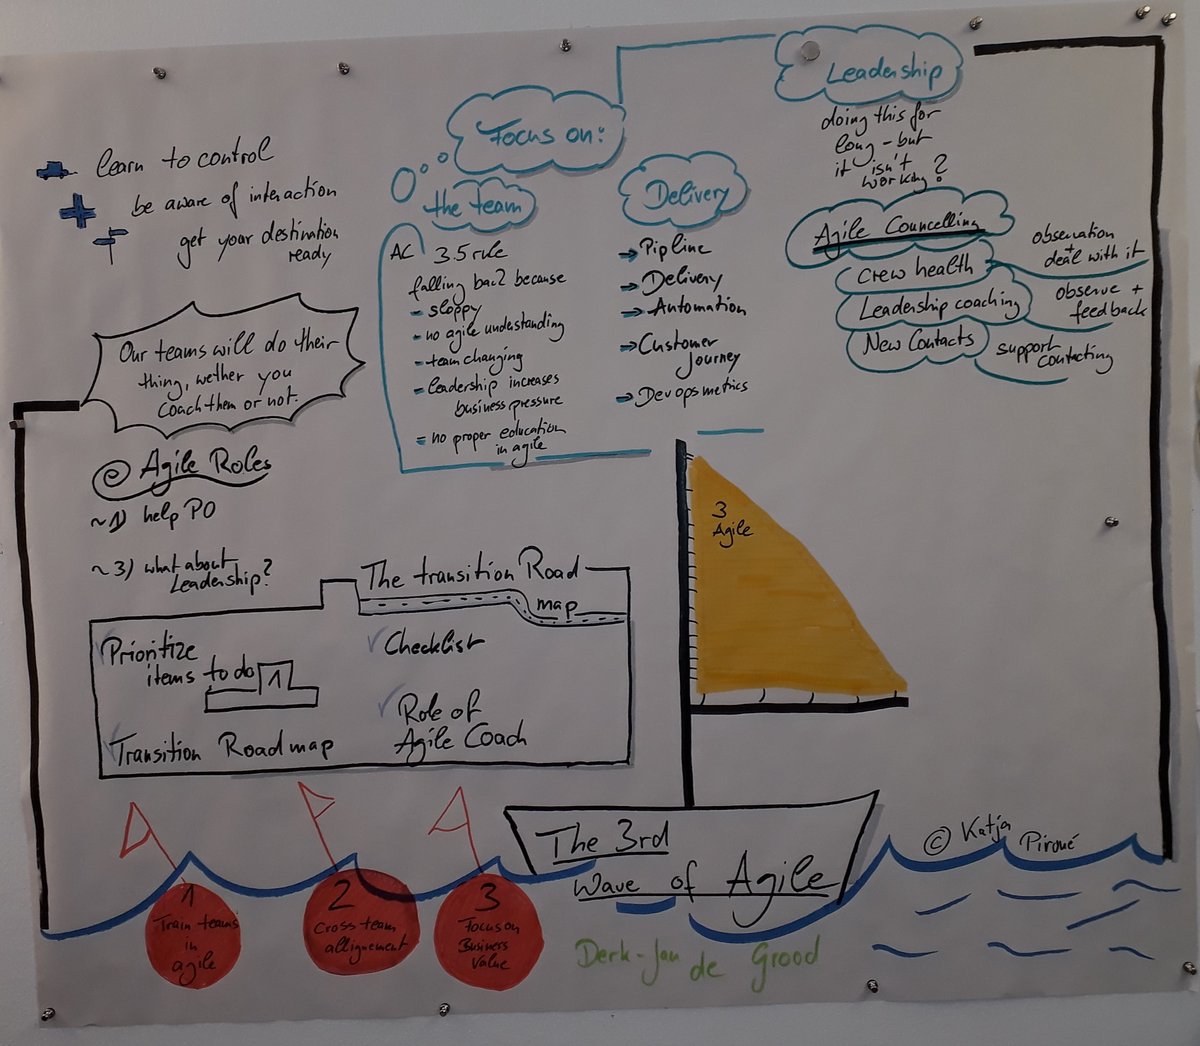 learn to control
be aware of interaction
get your destination
ready
Our teams will do their
thing, wether you
coach them or not.
@ Agile Roles
~1) help PO
~3) what about
Leadership?
Focus on:
the team
AC 3.5 rule
falling back because
- sloppy
- no agile understanding
- team changing
- leadership increases
business pressure
= no proper education
in agile
Delivery
→ Pipline
→ Delivery
→ Automation
→ Customer
Journey
→ Devopsmetrics
Leadership
doing this for
long - but
it isn't
working?
Agile Councelling
Crew health
observation
+
deal with it
Leadership coaching
observe +
feedback
New Contacts
support
contacting
The transition Road
map
Prioritize
items to do
1
Checklist
Transition Roadmap
Role of
Agile Coach
3
Agile
The 3rd
Wave of Agile
© Katja
Piroué
1
Train teams
in
agile
2
Cross team
allignement
3
Focus on
Business
Value
Derk-Jan
de Grood